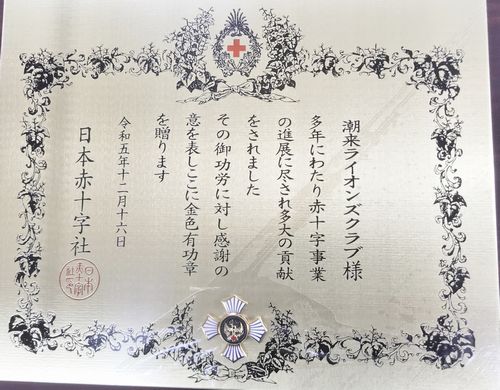 潮来ライオンズクラブ様
多年にわたり赤十字事業
の進展に尽され多大の貢献
をされました
その御功労に対し感謝の
意を表しここに金色有功章
を贈ります
令和五年十二月十六日
日本赤十字社